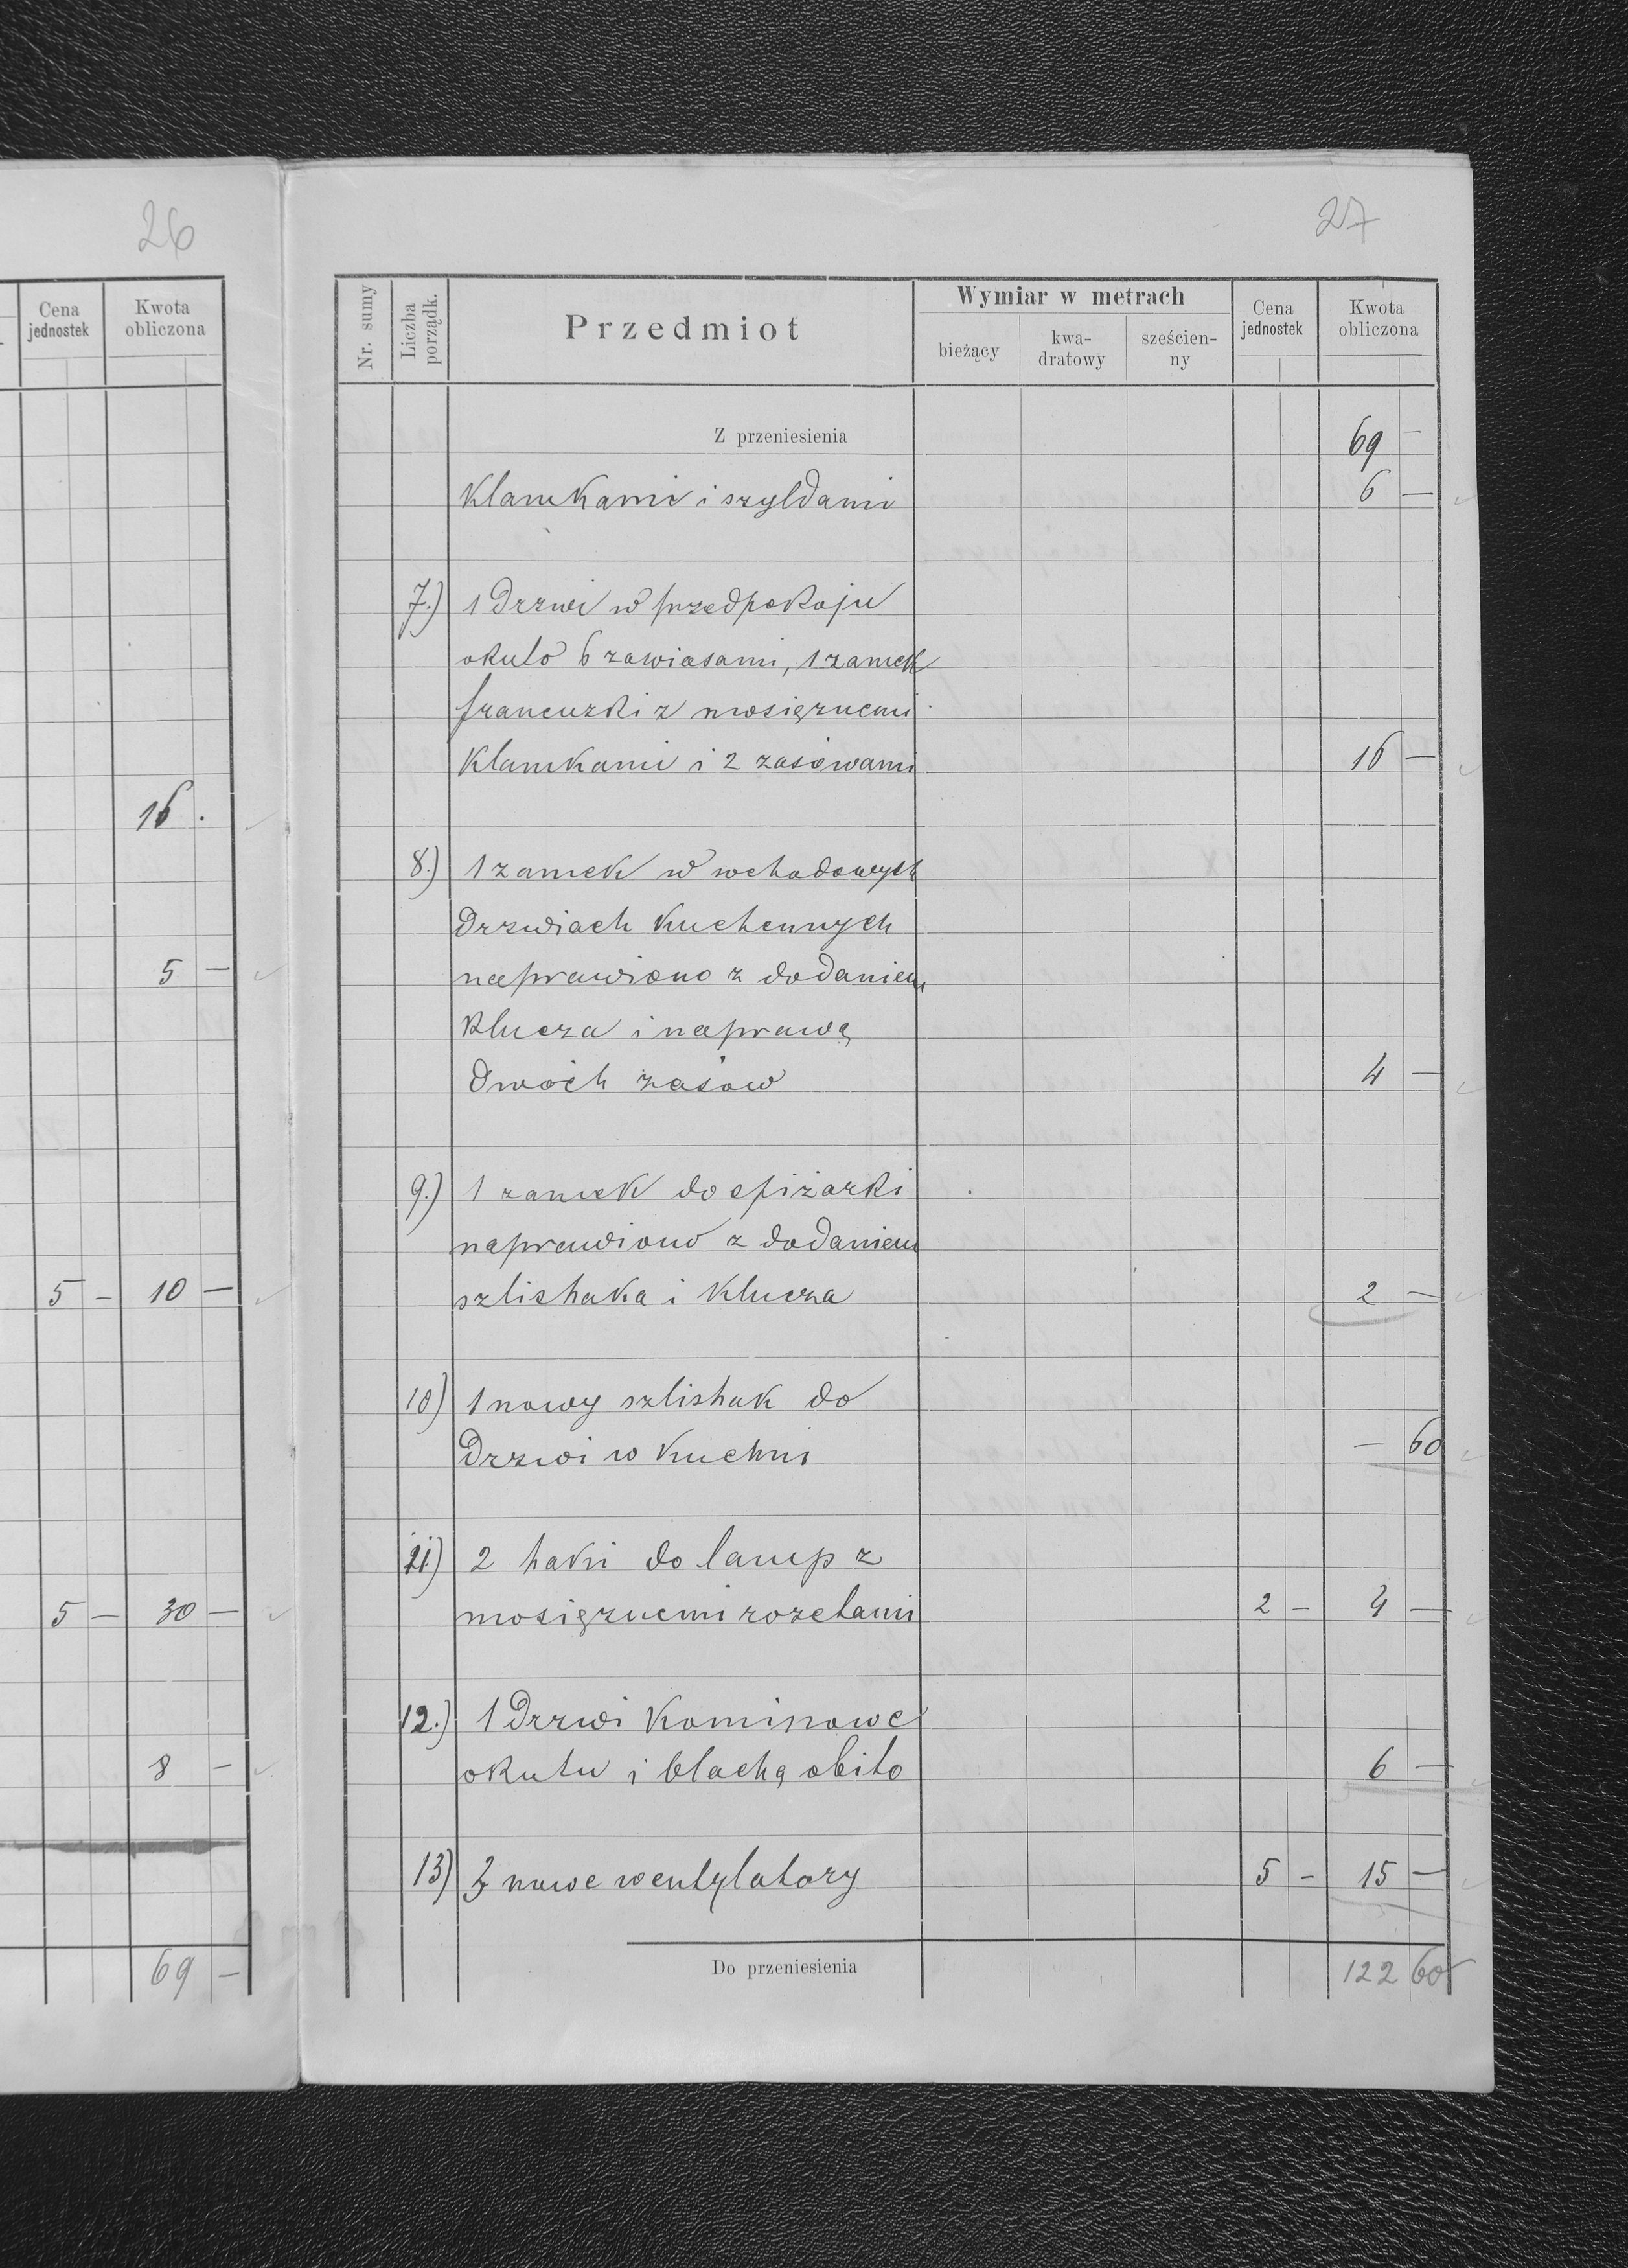 26
Cena jednostek
Kwota obliczona
16 .
5 —
5 — 10 —
5 — 30 —
8 —
69 —
27
Nr. sumy
Liczba porządk.
Przedmiot
Wymiar w metrach
bieżący
kwa-
dratowy
sześcien-
ny
Cena jednostek
Kwota obliczona
Z przeniesienia 69 —
Klamkami i szyldami 6 —
7.) 1 Drzwi w przedpokoju
okuto 6 zawiasami, 1 zamek
francuzki z mosięznemi
Klamkami i 2 zasówami 16 —
8.) 1 zamek w wchodowych
Drzwiach Kuchennych
naprawiono z dodaniem
Klucza i naprawą
Dwóch zasów 4 —
9.) 1 zamek do spiżarki
naprawiono z dodaniem
szlishaka i Klucza 2 —
10) 1 nowy szlishak do
Drzwi w Kuchni — 60
11) 2 haki do lamp z
mosięznemi rozetami 2 — 4 —
12.) 1 Drzwi Kominowe
okuto i blachą obito 6 —
13) 3 nowe wentylatory 5 — 15 —
Do przeniesienia 122 60